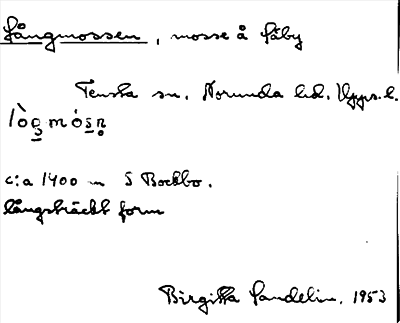 Långmossen, mosse å Låby
Tensta sn. Norunda hd. Upps.l.
lòŋmósn̥
c:a 1400 m S Bockbo.
långsträckt form
Birgitta Sandelin. 1953